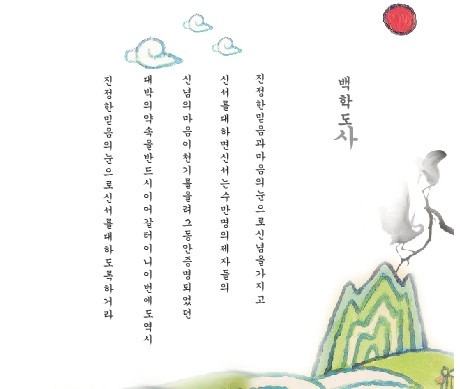 백학도사
진정한믿음과마음의눈으로신념을가지고
신서를대하면신서는수만명의제자들의
신념의마음이천기를울려그동안증명되었던
대박의약속을반드시이어갈터이니이번에도역시
진정한믿음의눈으로신서를대하도록하거라